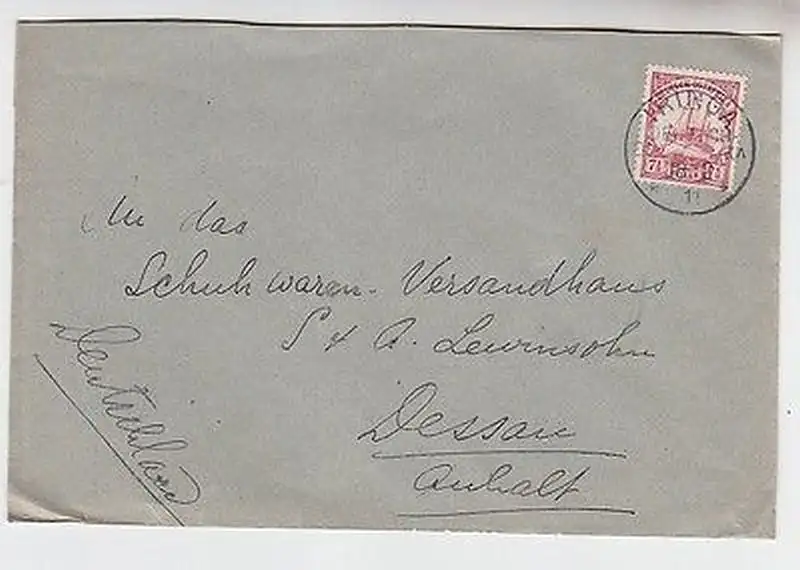 IRINGA
7½
11
An das
Schuhwaren-Versandhaus
S & A. Lewinsohn
Dessau
Anhalt
Deutschland